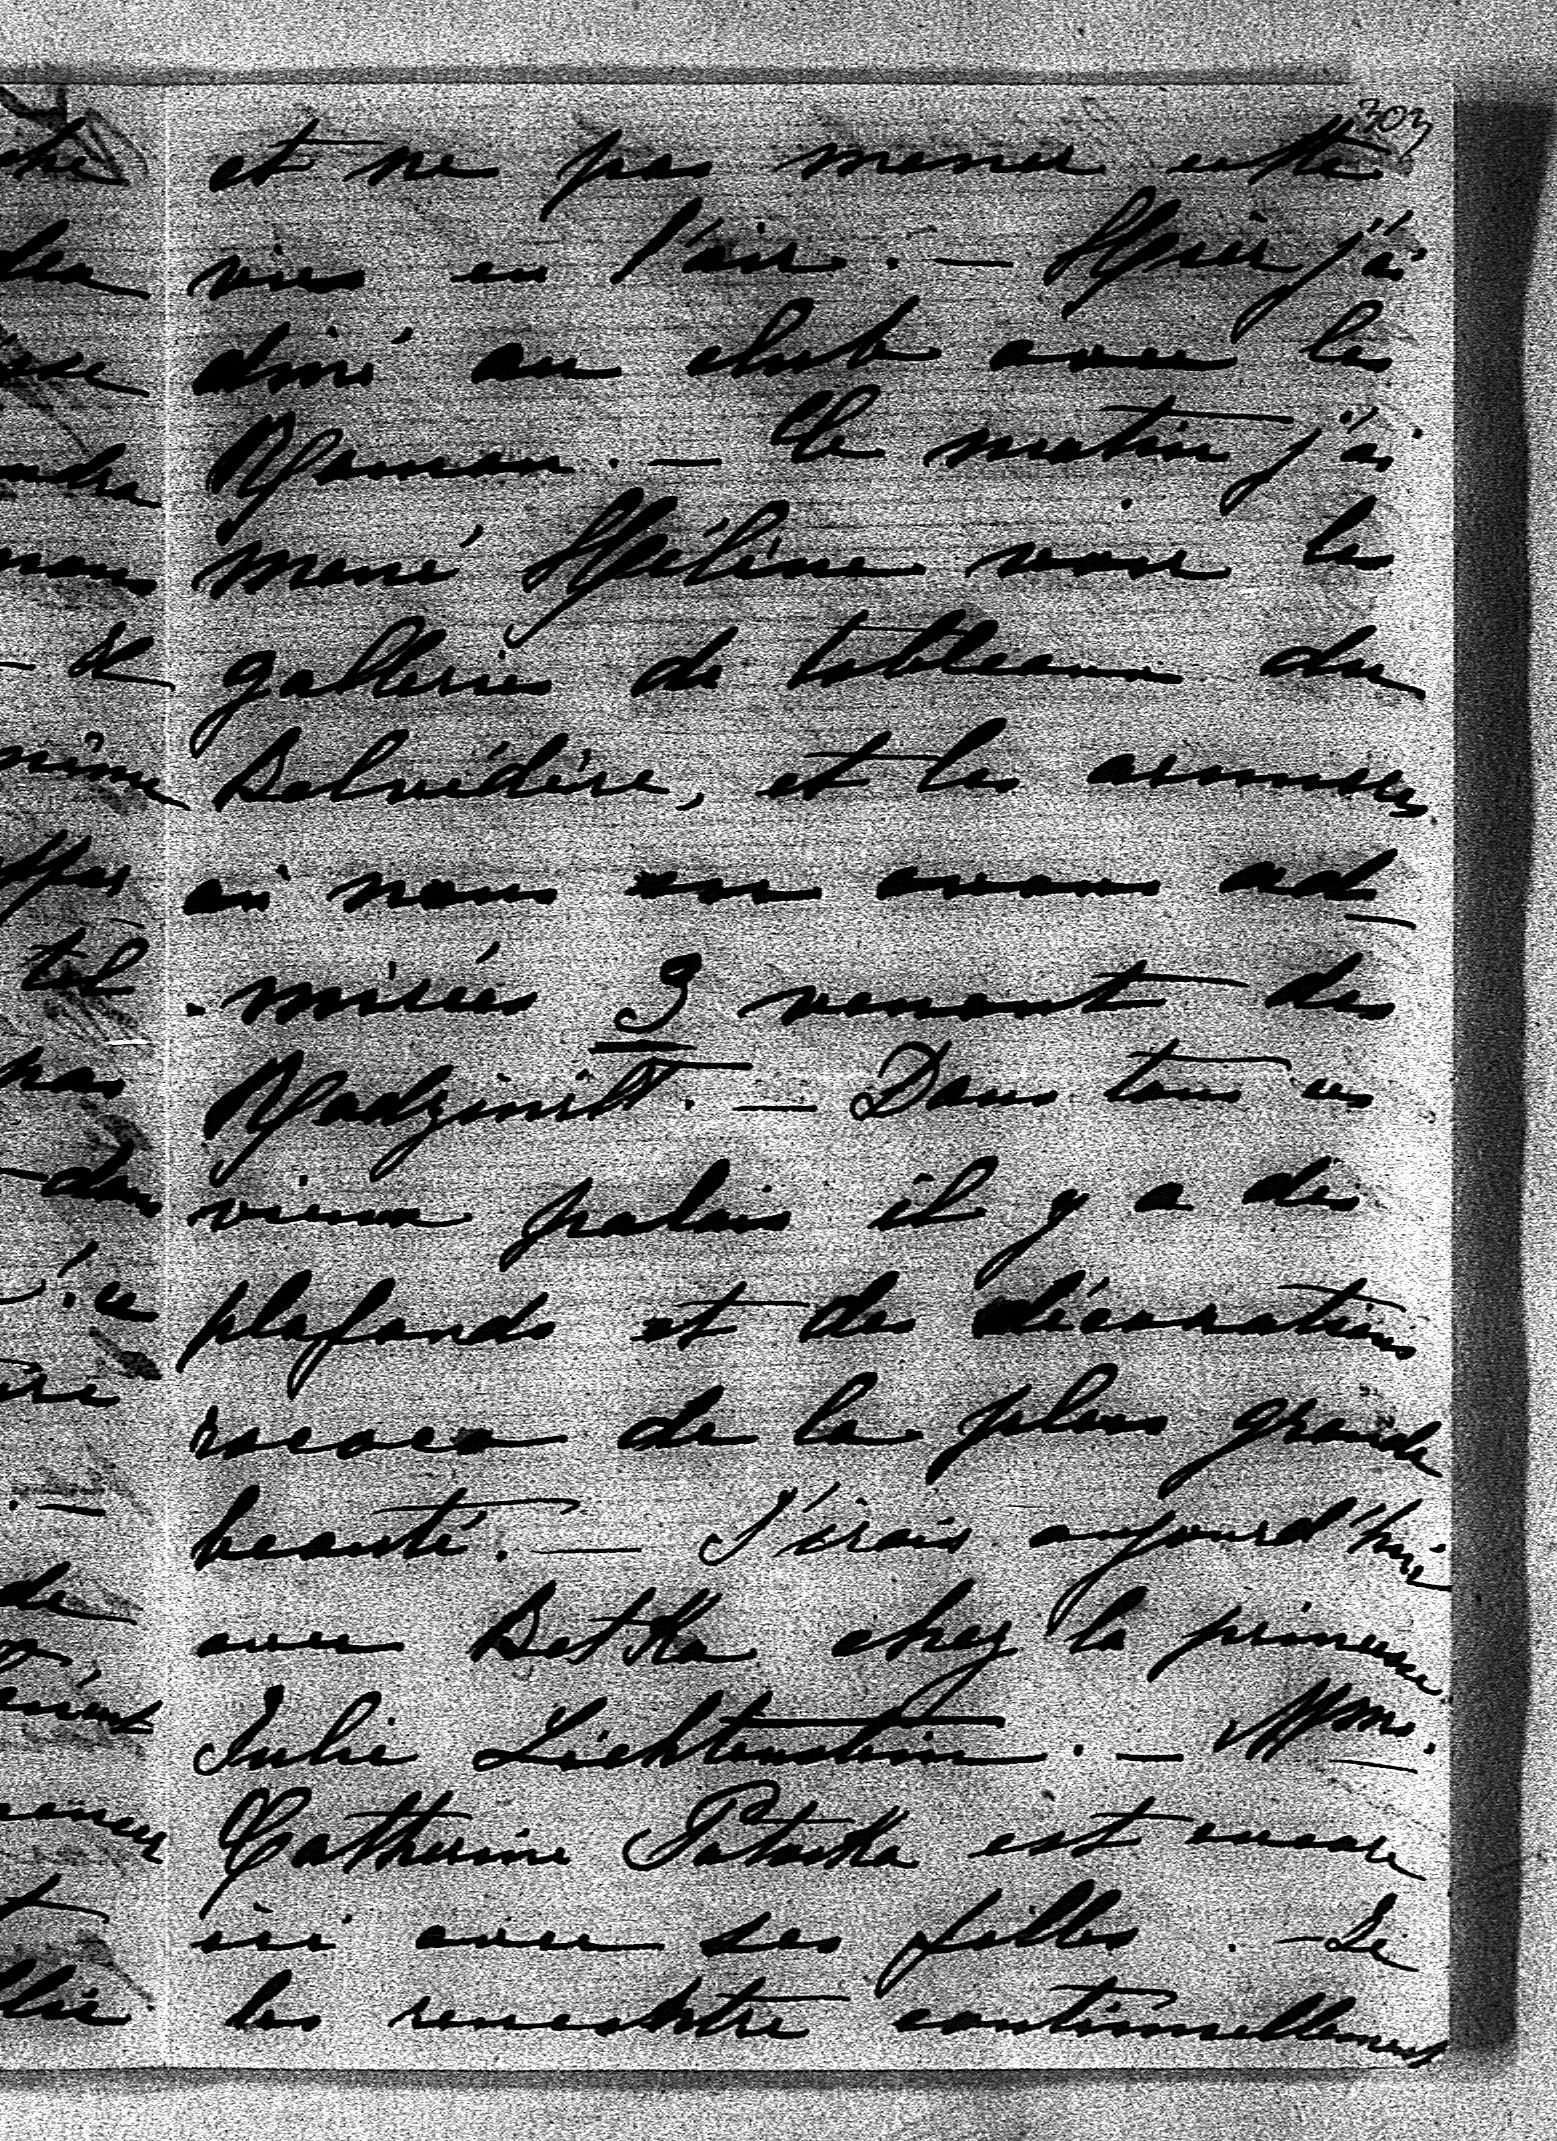 303
et ne pas mener cette
vies en l'air. — Hier j'ai
diné au club avec les
Roman. — Ce matin j'ai
mené Hélène voir les
galleries de tableaux du
Belvédère, et les armures
où nous en avons ad-
mirées 3 venant des
Radziwill. — Dans tous ces
vieux palais il y a des
plafonds et des décorations
rococo de la plus grande
beauté. — J'irais aujourd'hui
avec Betka chez la princesse
Julie Lichtenstein. — Mme.
Catherine Potocka est encore
ici avec ses filles. — Je
les rencontre continuellement